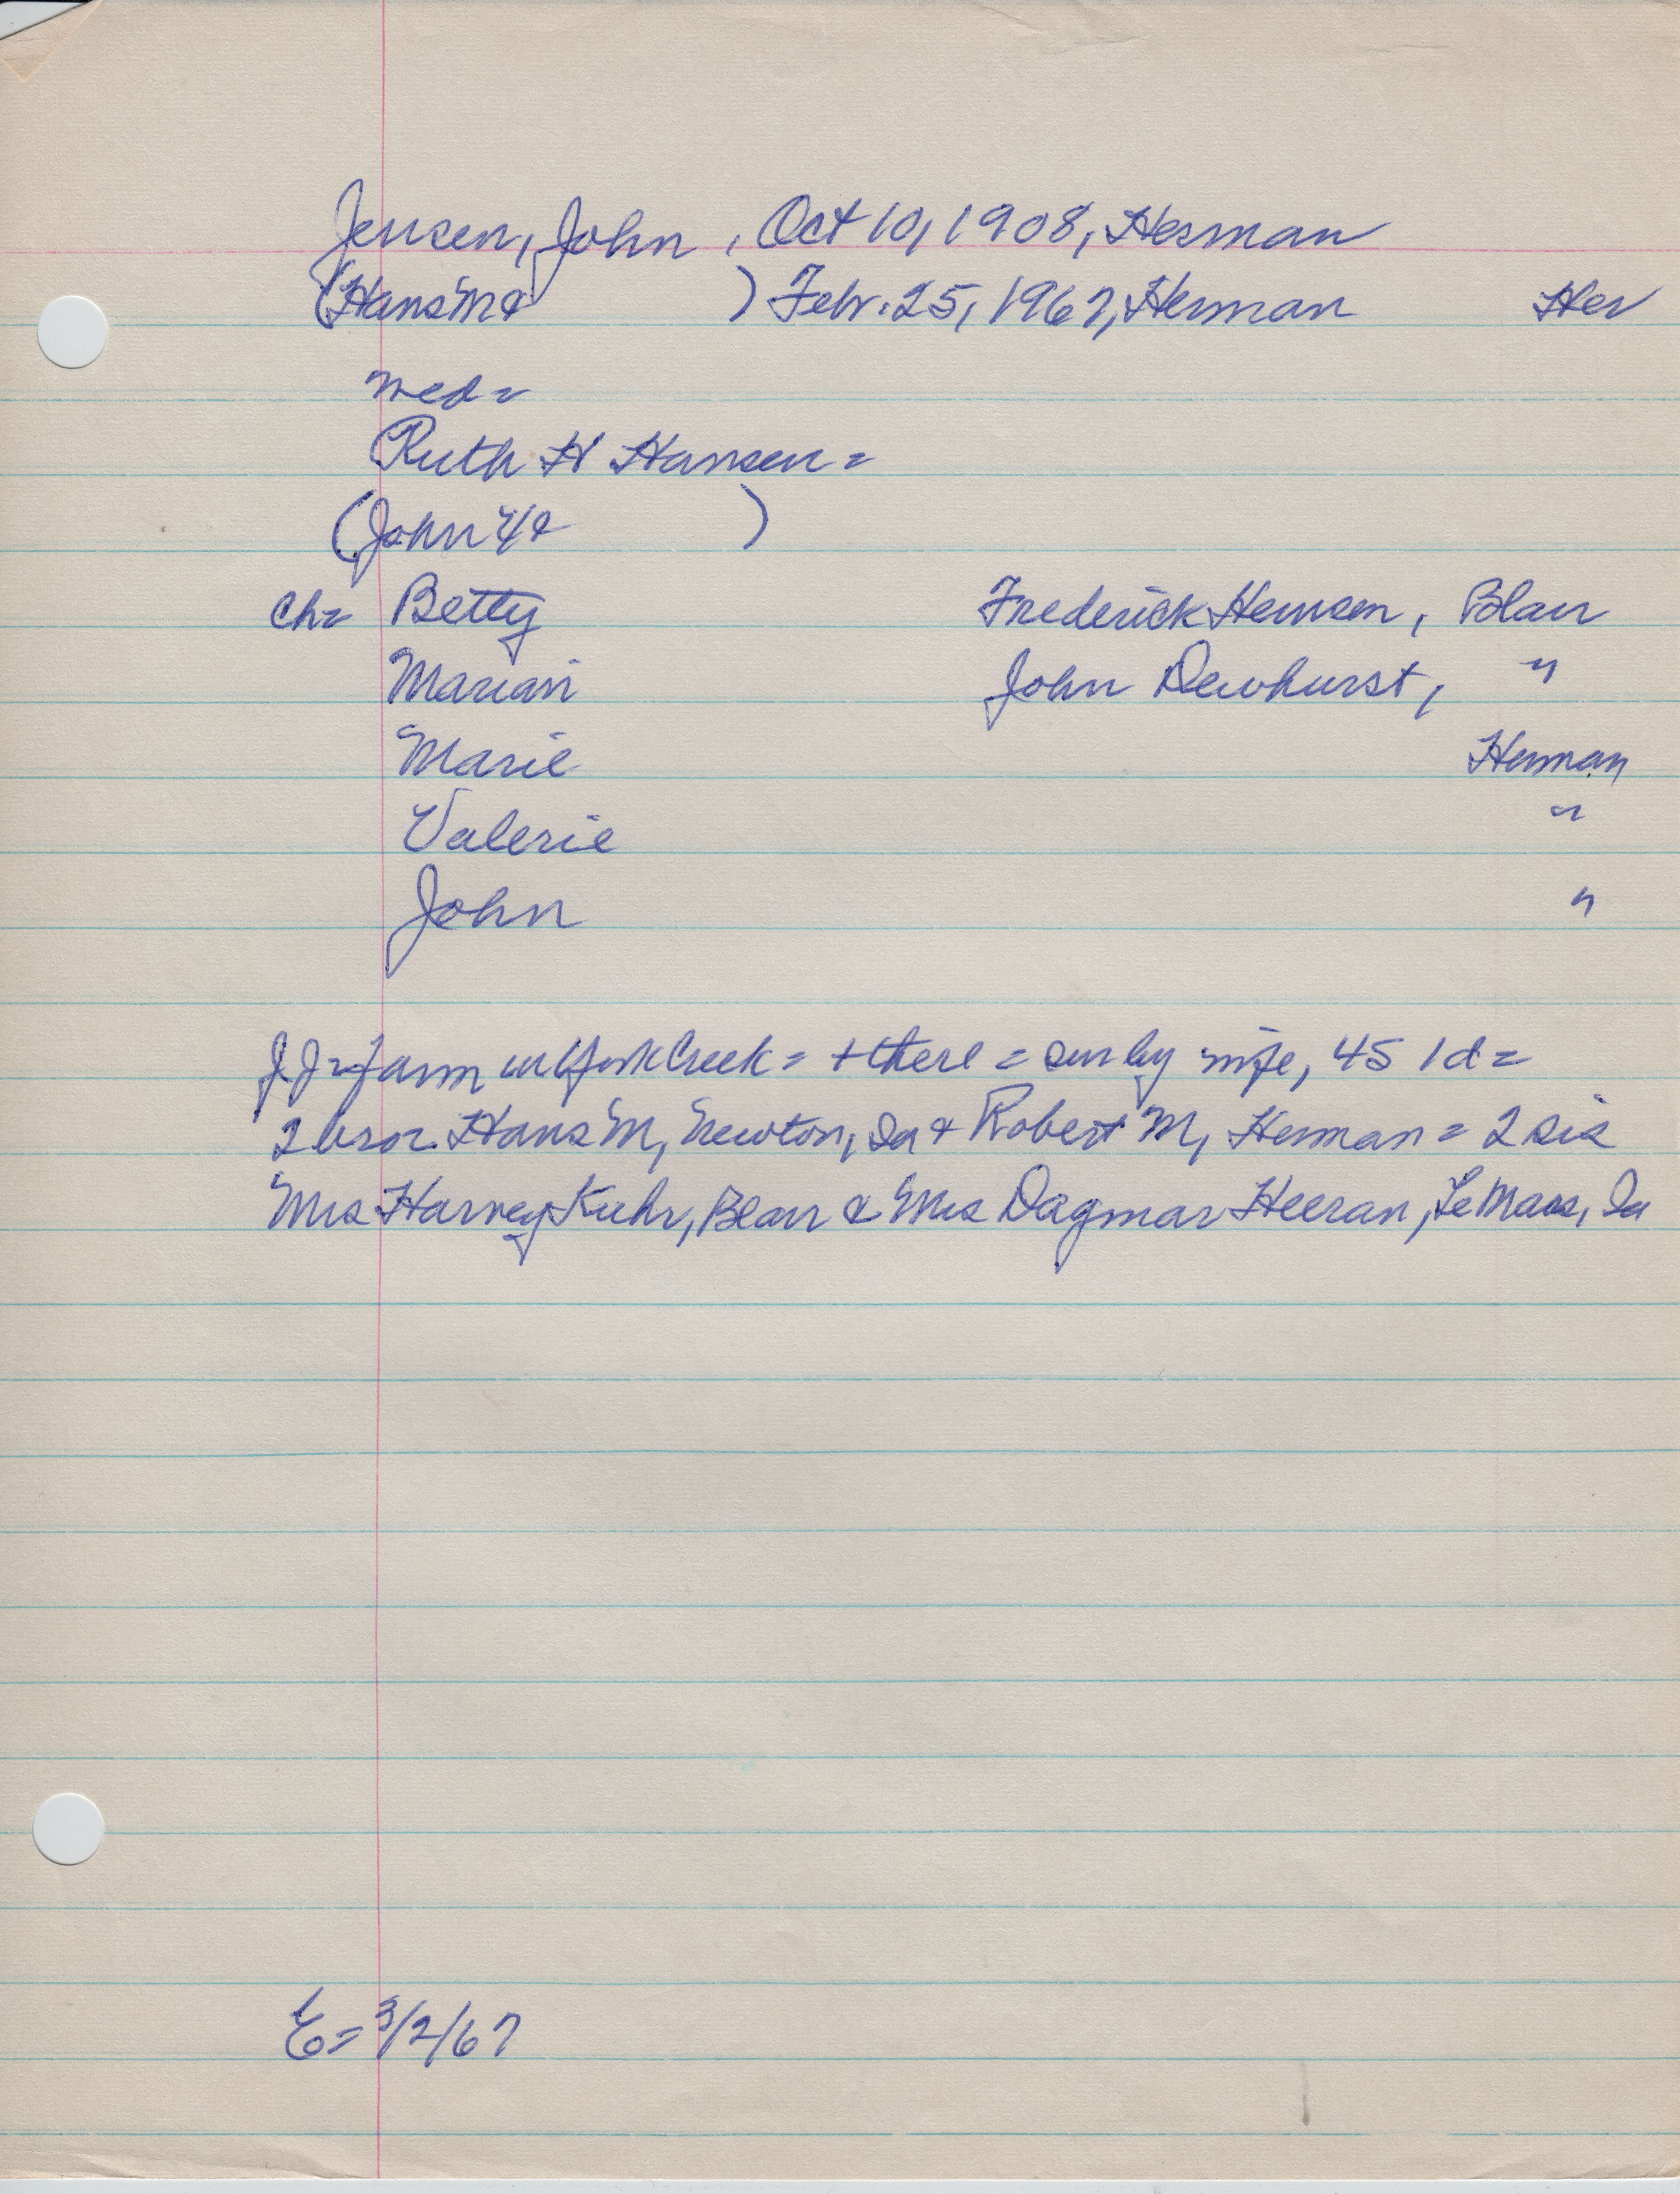 Jensen, John , Oct 10, 1908, Herman
(Hans M & ) Febr. 25, 1967, Herman Her
wed =
Ruth H Hansen =
(John Y & )
Ch = Betty Frederick Hemsen, Blair
Marian John Dewhurst, "
Marie Herman
Valerie "
John "
J J = farm Creek = + there = sur by wife, 4S 1d =
2 bro. Hans M, Newton, Ia & Robert M, Herman = 2 sis
Mrs Harvey Kuhr, Blair & Mrs Dagmar Heeran, Le Mars, Ia
E = 3/2/67